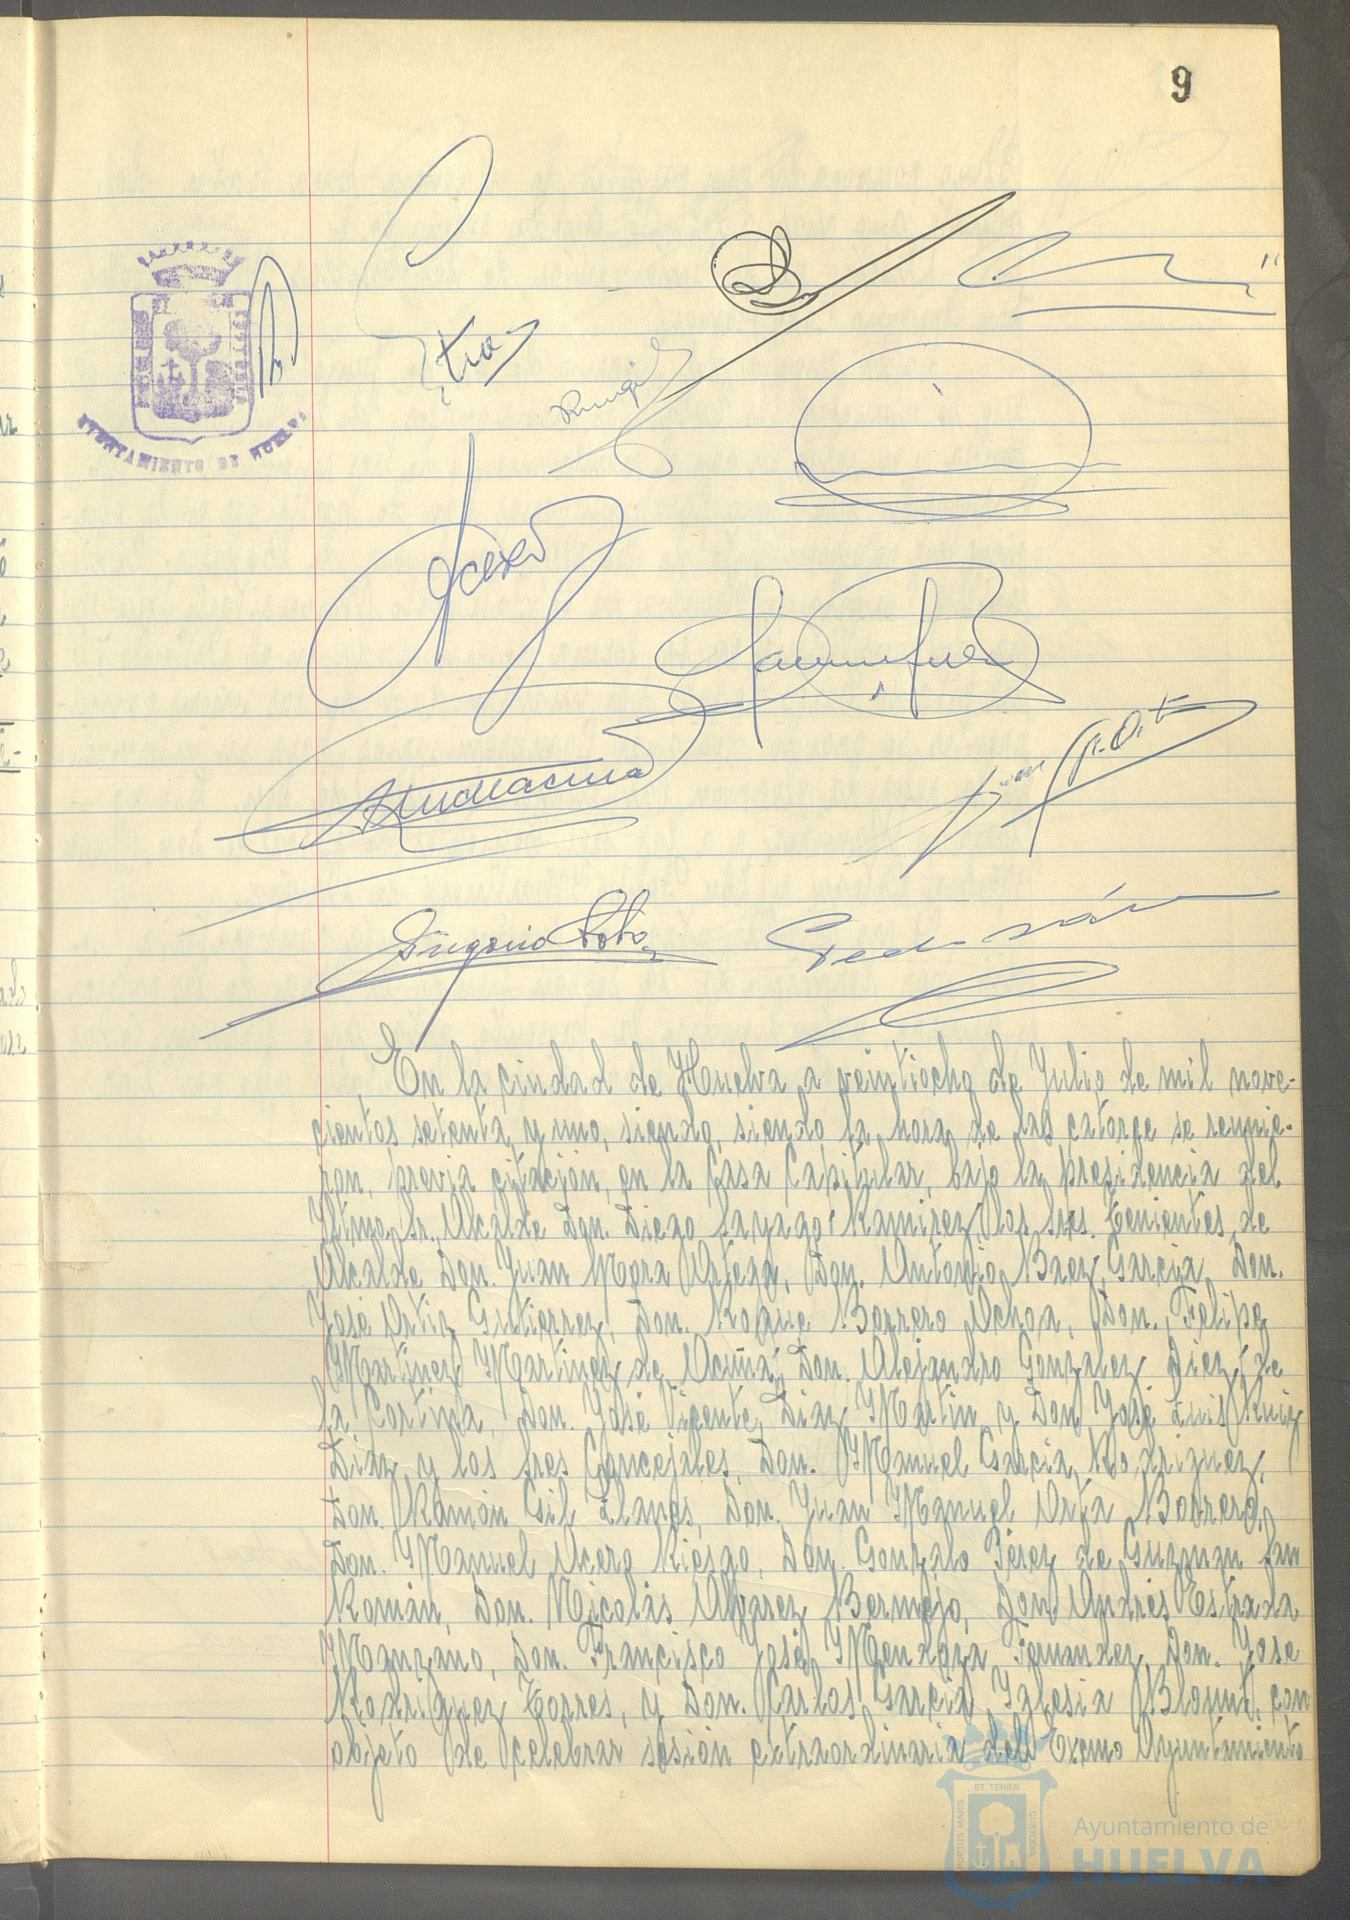 9
AYUNTAMIENTO DE HUELVA
Eugenio
En la ciudad de Huelva a veintiocho de Julio de mil nove-
cientos setenta y uno, siendo, siendo la hora de las catorce se reunie-
ron, previa citación, en la Casa Capitular, bajo la presidencia del
Iltmo. Sr. Alcalde Don. Diego Sayago Ramirez, los Sres. Tenientes de
Alcalde Don. Juan Mora Arteaga, Don. Antonio Baez Garcia, Don.
José Ortiz Gutierrez, Don. Roque Borrero Ochoa, Don. Felipe
Martinez Martinez de Acuña, Don. Alejandro Gonzalez Diez de
la Cortina, Don. José Vicente Diaz Martin y Don José Luis Ruiz
Diaz, y los Sres Concejales, Don. Manuel Garcia Rodriguez,
Don. Ramón Gil Llanes, Don. Juan Manuel Orta Borrero,
Don. Manuel Acero Riesgo, Don. Gonzalo Pérez de Guzman San
Román, Don. Nicolás Alvarez Bermejo, Don Andrés Estrada
Manzano, Don. Francisco José Mendoza Fernandez, Don. Jose
Rodriguez Torres, y Don. Carlos Garcia Iglesia Blount, con
objeto de celebrar sesión extraordinaria del Excmo Ayuntamiento
ET TERRAE
PORTUS MARIS
CUSTODIA
Ayuntamiento de
HUELVA